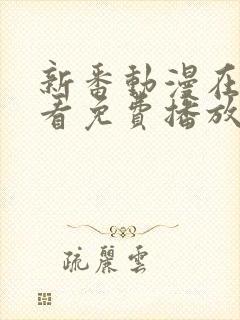 新番動漫在
看免費播放
疏麗雲